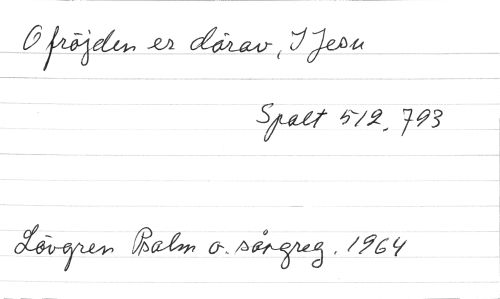 O fröjden er därav, I Jesu
Spalt 512, 793
Lövgren Psalm o. sångreg. 1964